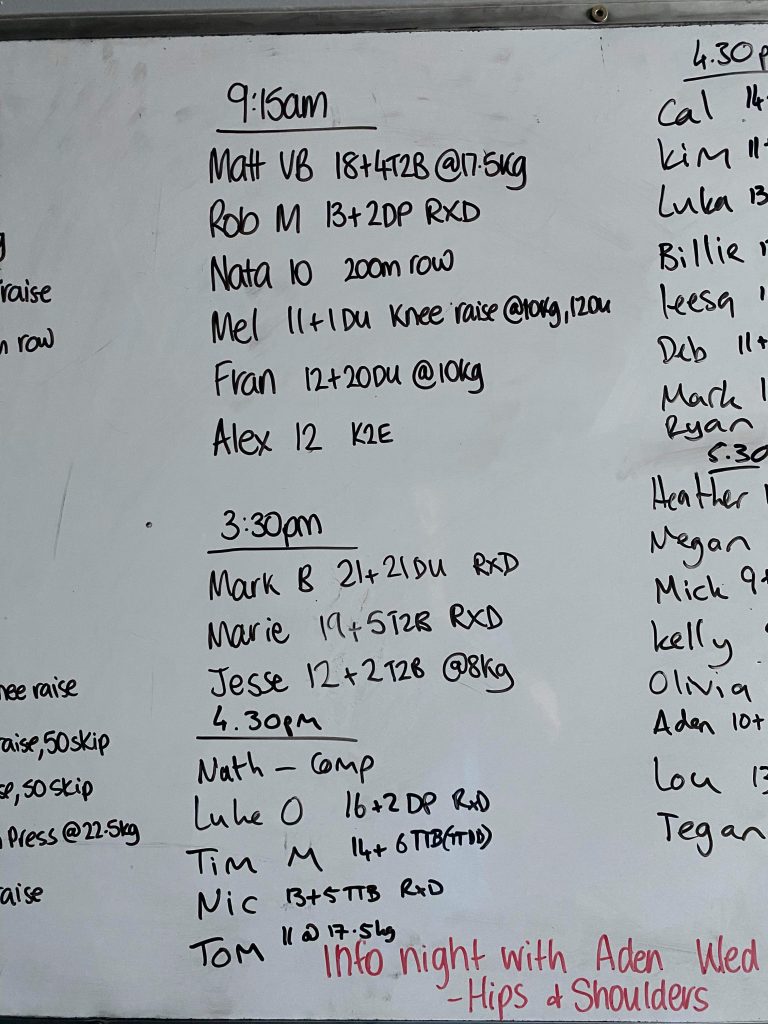 raise
row
nee raise
raise, 50 skip
se, 50 skip
Press @22.5kg
aise
9:15am
Matt VB 18+4T2B @17.5kg
Rob M 13+2DP RXD
Nata 10 200m row
Mel 11+1DU Knee raise @10kg, 12DU
Fran 12+20DU @10kg
Alex 12 K2E
3:30pm
Mark B 21+21DU RXD
Marie 19+5T2B RXD
Jesse 12+2T2B @8kg
4.30pm
Nath - Comp
Luke O 16+2DP RxD
Tim M 14+6TTB
Nic 13+5TTB RxD
Tom 11 @ 17.5kg
4.30p
Cal 14
Kim 11+
Luka 13
Billie
Leesa
Deb 11+
Mark 1
Ryan
5.30
Heather
Megan
Mick 9+
Kelly
Olivia
Aden 10+
Lou 13
Tegan
Info night with Aden Wed
- Hips & Shoulders